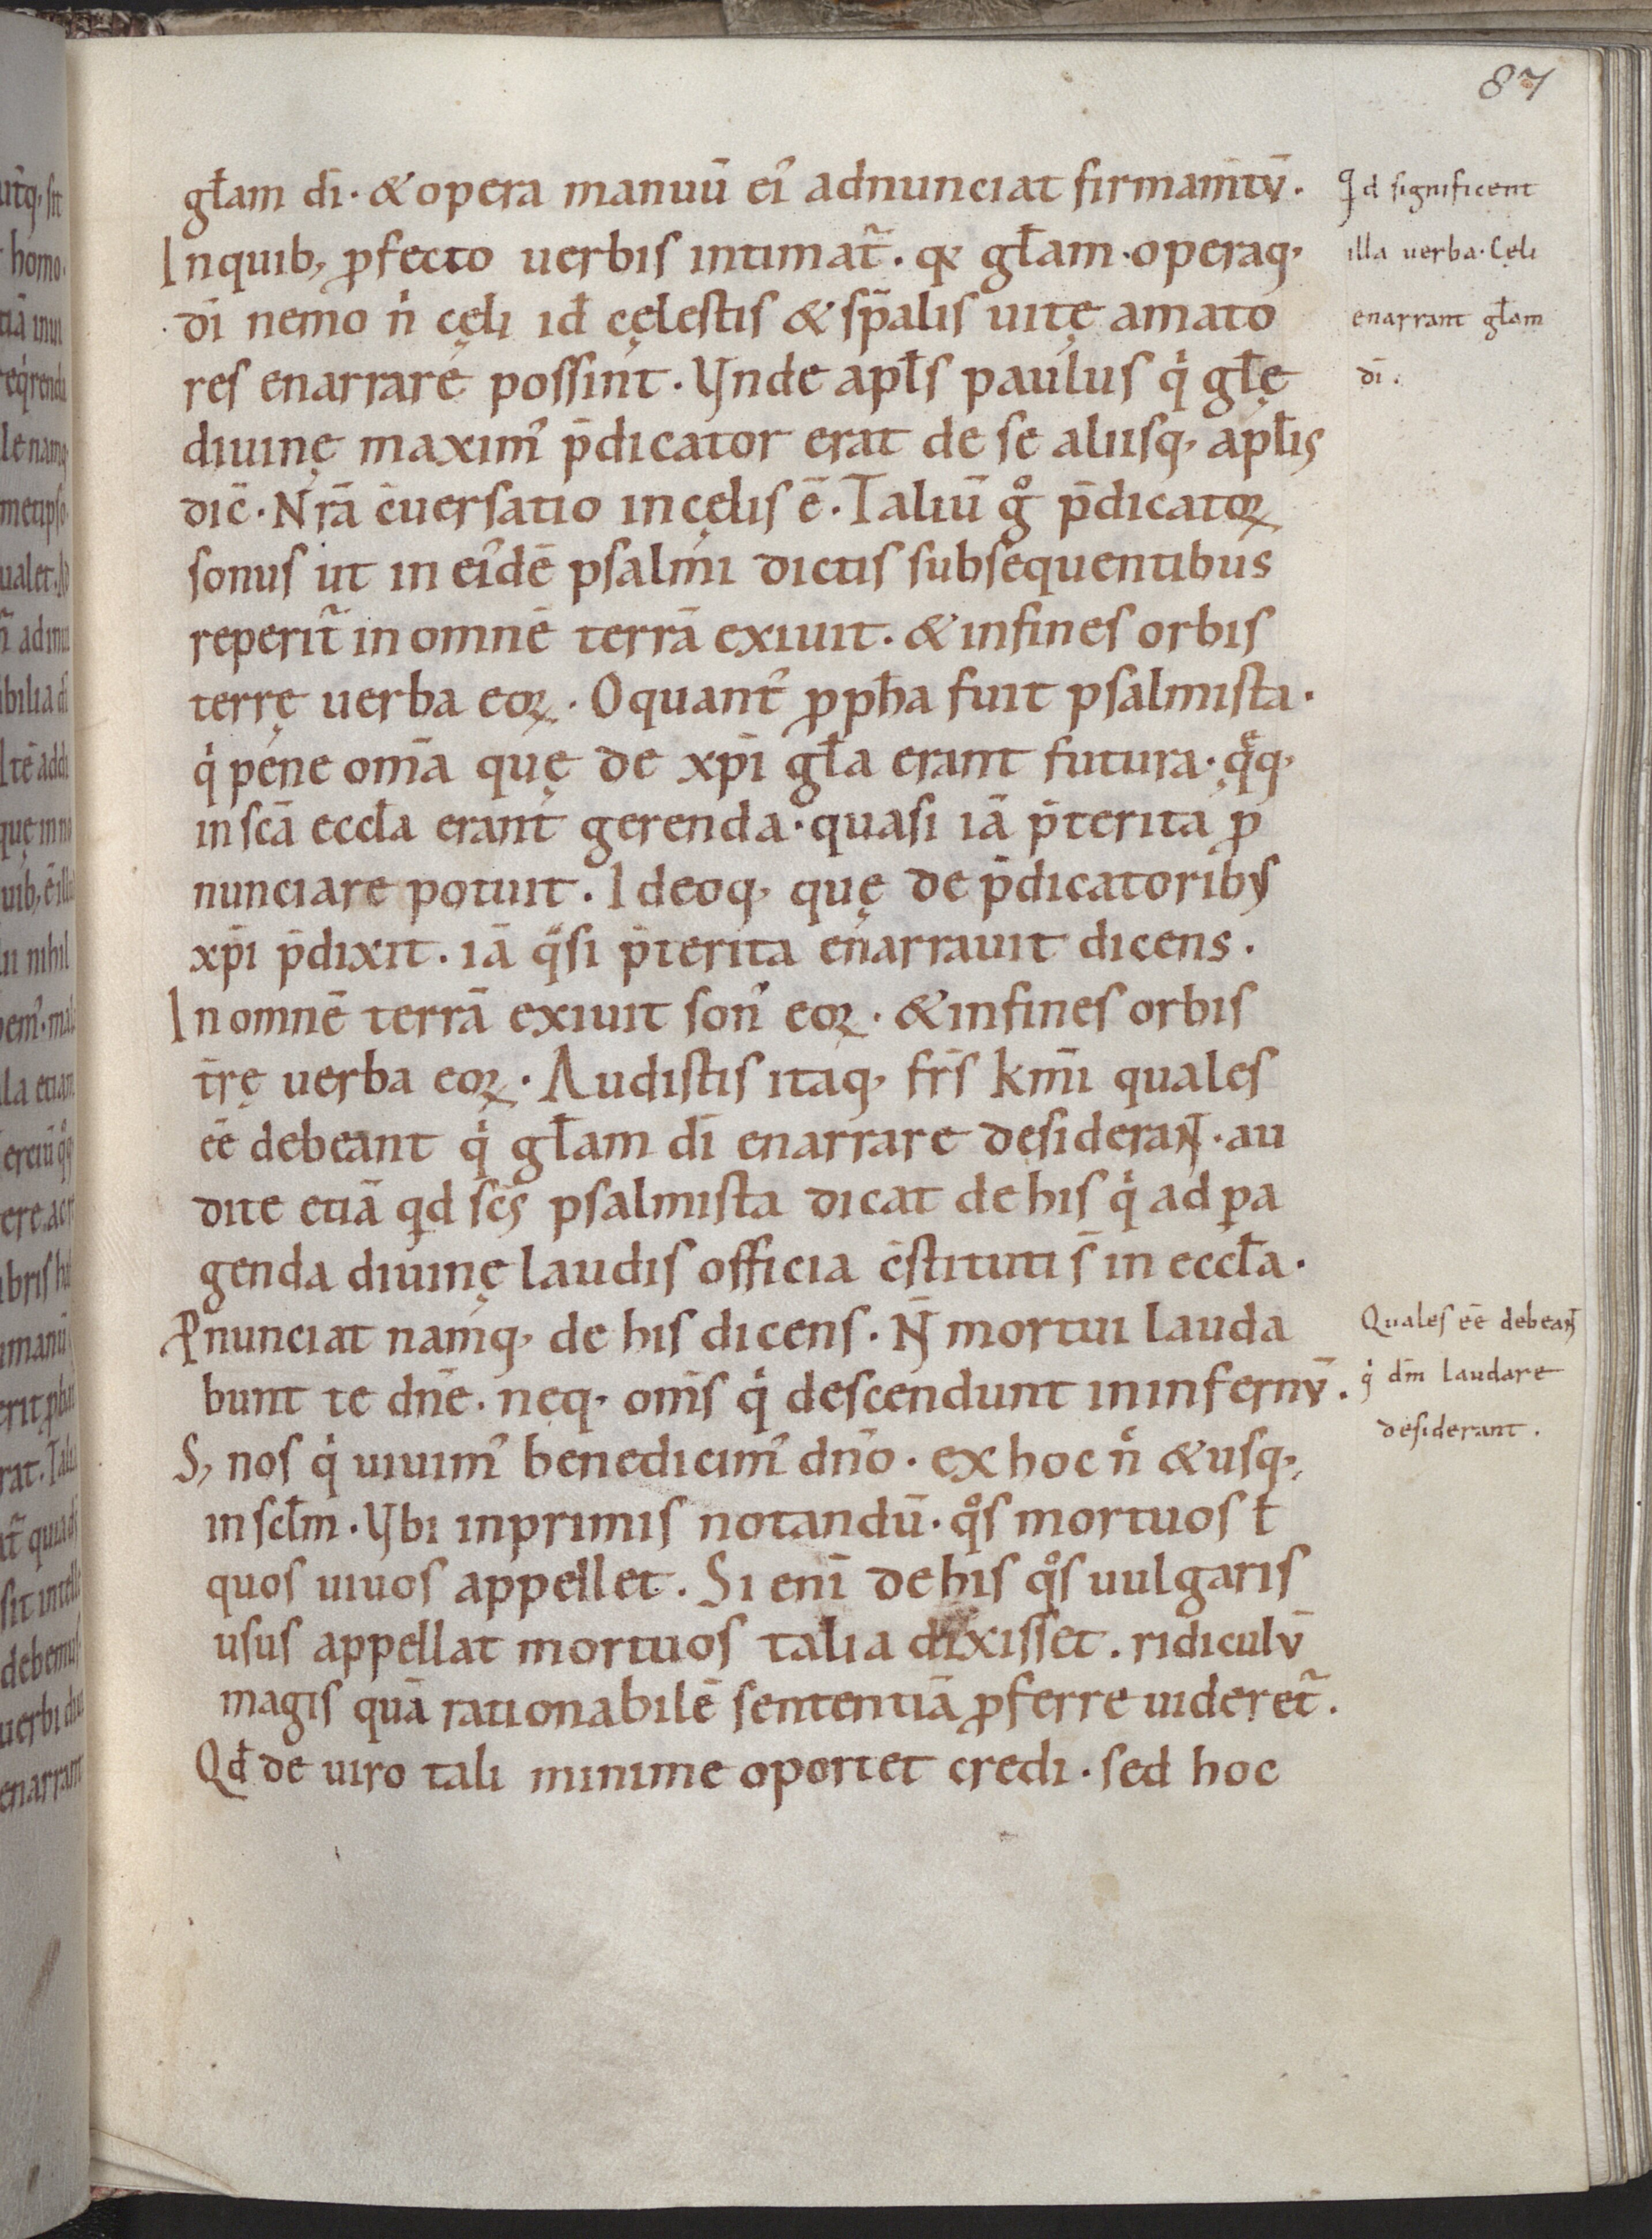 87
gƚam dī · & opera manuū ei᾽ adnunciat firmam̄tv̄ ·
Inquib; ꝓfecto uerbis intimat᷑ · qꝫ gƚam · operaq;
dī nemo n̓ cęli id̄ cęlestis & sp̄alis uitę amato
res enarrare possint · Vnde apƚs paulus q̓ gƚę
diuinę maxim᾽ p̄dicator erat de se aliisq; apƚis
dic̄ · Nr̄a c̄uersatio in cęlis ē · Taliū gͦ p̄dicatoꝝ
sonus ut in ei᾽dē psalmi dictis subsequentibus
reperit᷑ in omnē terrā exiuit · & in fines orbis
terrę uerba eoꝝ · O quant᾽ ꝓpħa fuit psalmista ·
q̓ pene om̄a quę de xp̄i gƚa erant futura · q̨̄q;
in sc̄a eccƚa erant gerenda · quasi iā p̄terita ꝓ
nunciare potuit · Ideoq; quę de p̄dicatoribus
xp̄i p̄dixit · iā qͣsi p̄terita enarrauit dicens ·
In omnē terrā exiuit son᾽ eoꝝ · & in fines orbis
t̄rę uerba eoꝝ · Audistis itaq; fr̄s km̄i quales
ēē debeant q̓ gƚam dī enarrare desiderant · au
dite etiā qd sc̄s psalmista dicat de his q̓ ad ꝑa
genda diuinę laudis officia c̄stituti s̄ in eccƚa ·
Ꝓnunciat namq; de his dicens · N̄ mortui lauda
bunt te dn̄e · neq; om̄s q̓ descendunt in infernv̄ ·
S; nos q̓ uiuim᾽ benedicim᾽ dn̄o · ex hoc n̊ & usq;
in scƚm · Vbi inprimis notandū · qͦs mortuos ƚ
quos uiuos appellet · Si eni᷑ de his qͦs uulgaris
usus appellat mortuos talia dixisset · ridiculv̄
magis quā rationabilē sententiā ꝓferre uideret᷑ ·
Qđ de uiro tali minime oportet credi · sed hoc
qd significent
illa uerba · Cęli
enarrant gƚam
dī ·
Quales ēē debeant
q̓ dm̄ laudare
desiderant ·